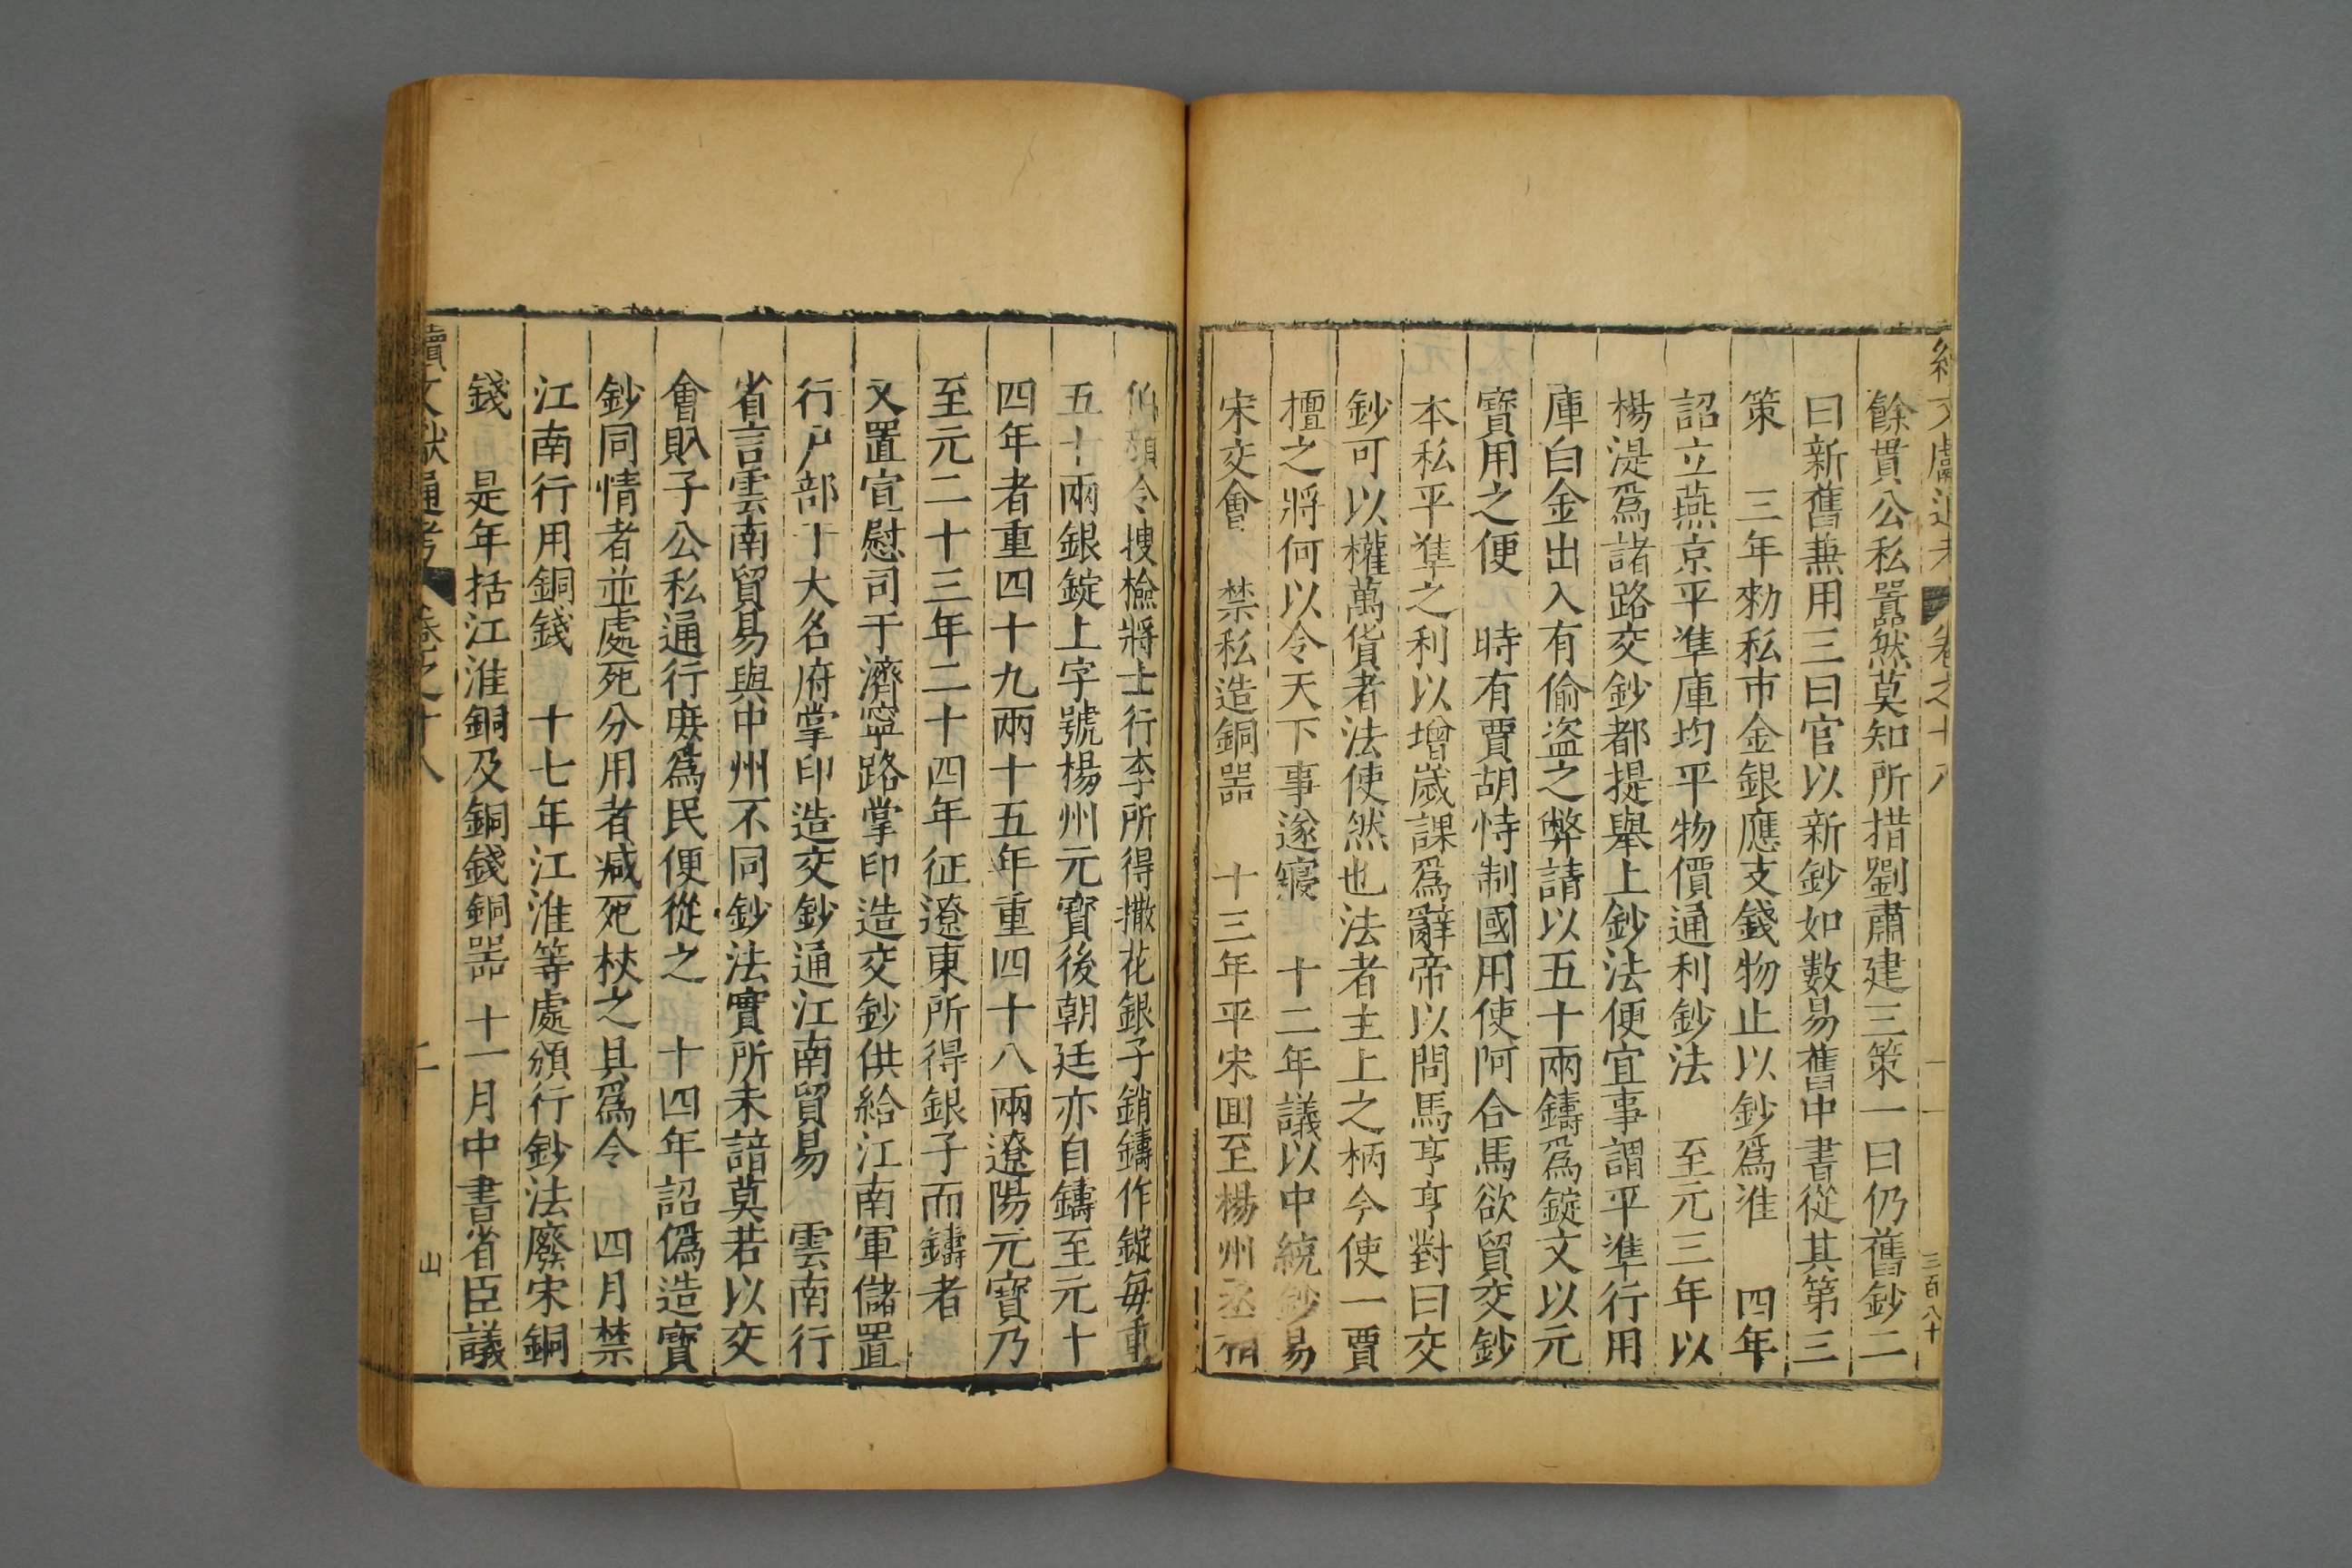 餘貫公私嚚然莫知所措劉肅建三策一曰仍舊鈔二
曰新舊兼用三曰官以新鈔如數易舊中書從其第三
策　三年勑私市金銀應支錢物止以鈔爲准　四年
詔立燕京平準庫均平物價通利鈔法　至元三年以
楊湜爲諸路交鈔都提舉上鈔法便宜事謂平準行用
庫白金出入有偷盗之弊請以五十兩鑄爲錠文以元
寳用之便　時有賈胡恃制國用使阿合馬欲貿交鈔
本私平準之利以增歲課爲辭帝以問馬亨亨對曰交
鈔可以權萬貨者法使然也法者主上之柄今使一賈
擅之將何以令天下事遂寢　十二年議以中統鈔易
宋交會　禁私造銅器　十三年平宋囬至楊州丞相
伯顏令搜檢將士行李所得撒花銀子銷鑄作錠每重
五十兩銀錠上字號楊州元寳後朝廷亦自鑄至元十
四年者重四十九兩十五年重四十八兩遼陽元寳乃
至元二十三年二十四年征遼東所得銀子而鑄者
又置宣慰司于濟寧路掌印造交鈔供給江南軍儲置
行戶部于大名府掌印造交鈔通江南貿易　雲南行
省言雲南貿易與中州不同鈔法實所未諳莫若以交
會㕡子公私通行庶爲民便從之　十四年詔僞造寳
鈔同情者並處死分用者减死杖之具爲令　四月禁
江南行用銅錢　十七年江淮等處頒行鈔法廢宋銅
錢　是年括江淮銅及銅錢銅器　十一月中書省臣議
續文獻通考　卷之十八　山